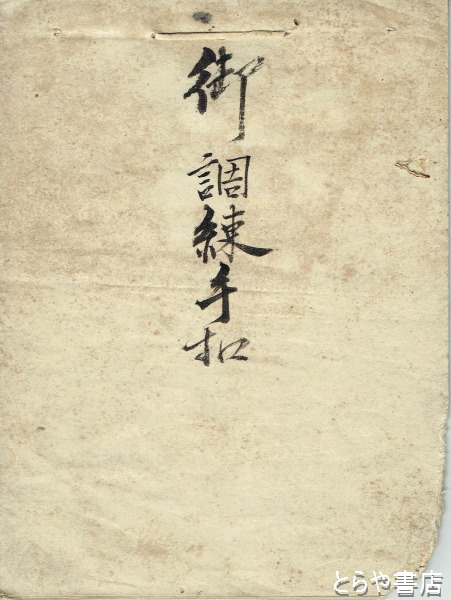 御調練手扣
とらや書店